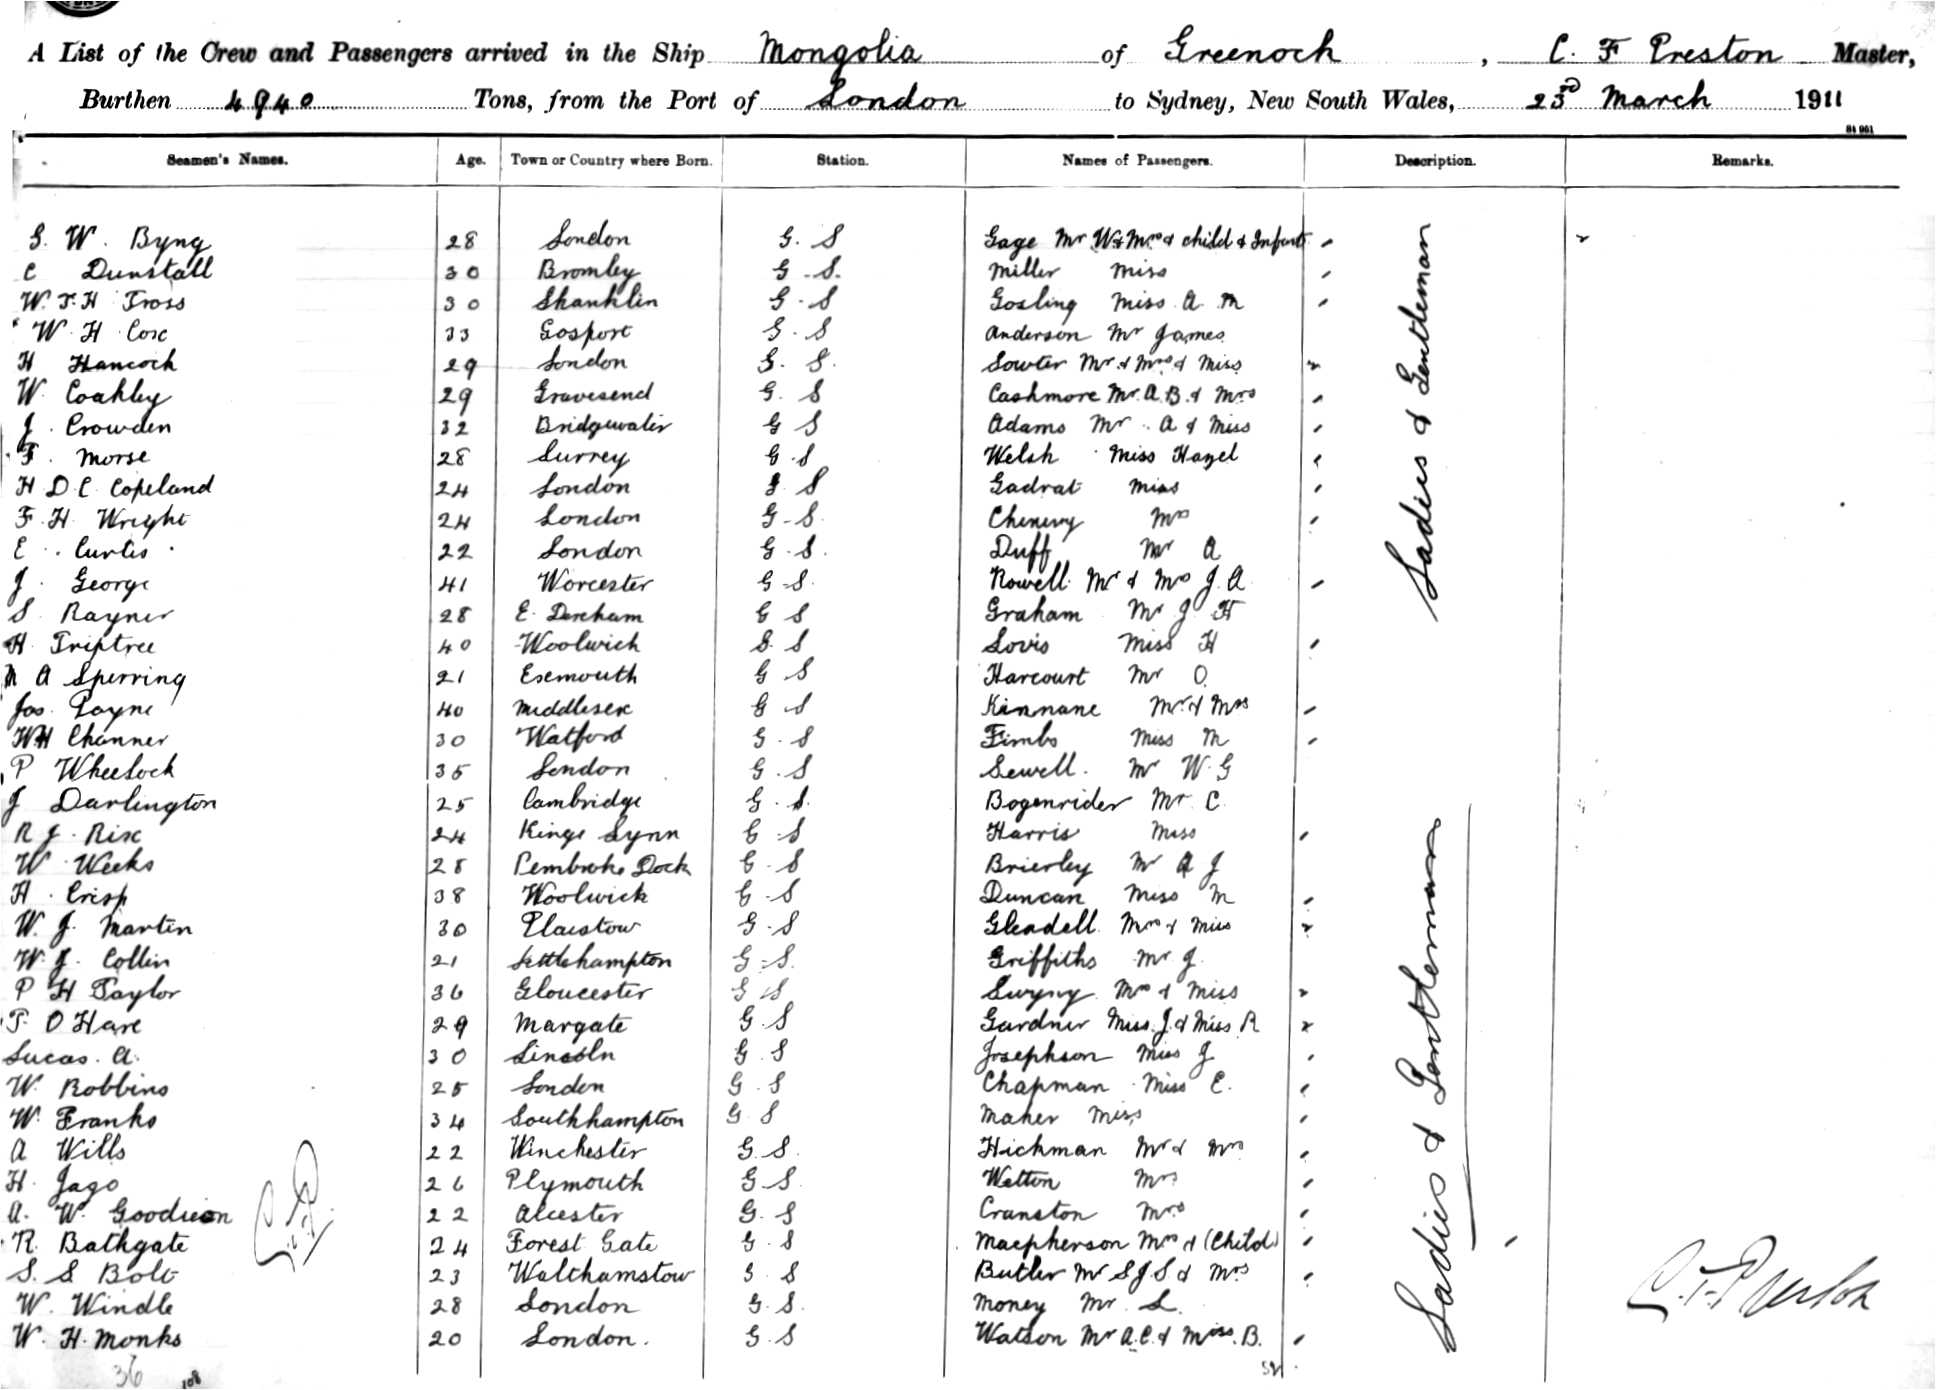 A List of the Crew and Passengers arrived in the Ship Mongolia of Greenock, C. F Preston Master,
Burthen 4940 Tons, from the Port of London to Sydney, New South Wales, 23rd March 1911
Seamen's Names. Age. Town or Country where Born. Station. Names of Passengers. Description. Remarks.
G. W. Byng 28 London G. S Gage Mr W & Mrs & child & Infant
C Dunstall 30 Bromley G. S. Miller Miss
W. T. H Tross 30 Shanklin G. S Gosling Miss A M
W. H Cox 33 Gosport G. S Anderson Mr James
H Hancock 29 London G. S. Sowter Mr & Mrs & Miss
W. Coakley 29 Gravesend G. S Cashmore Mr. A. B. & Mrs
J. Crowden 32 Bridgewater G S Adams Mr A & Miss
F. Morse 28 Surrey G. S Welsh Miss Hazel
H. D. C. Copeland 24 London G S Gadrat Miss
F. H. Wright 24 London G. S. Chenery Mrs
E. Curtis 22 London G. S. Duff Mr A
J. George 41 Worcester G. S. Rowell Mr & Mrs J. A
S Rayner 28 E. Dereham G S Graham Mr J H
H. Triptree 40 Woolwich G. S Lovis Miss H
A Sperring 21 Exmouth G S Harcourt Mr O.
Jos. Payne 40 Middlesex G S Kinnane Mr & Mrs
WH Channer 30 Watford G. S Timbs Miss M
P Wheelock 35 London G. S Sewell. Mr W. G
J Darlington 25 Cambridge G. S. Bogenrider Mr C.
R J. Rix 24 Kings Lynn G S Harris Miss
W Weeks 28 Pembroke Dock G. S Brierley Mr A J
H. Crisp 38 Woolwich G. S Duncan Miss M
W. J. Martin 30 Plaistow G. S Gleadell. Mrs & Miss
W. J. Collin 21 Littlehampton G. S. Griffiths Mr J.
P H Taylor 36 Gloucester G S Swyny Mrs & Miss
T. O Hare 29 Margate G. S Gardner Miss. J. & Miss R
Lucas. A. 30 Lincoln G. S Josephson Miss J
W. Robbins 25 London G. S Chapman Miss E.
W. Franks 34 Southhampton G. S Maher Miss
A Wills 22 Winchester G. S. Hickman Mr & Mrs
H. Jago 26 Plymouth G. S. Welton Mrs
A. W. Goodieson 22 Alcester G. S Cranston Mrs
R. Bathgate 24 Forest Gate G. S Macpherson Mrs & (Child)
S. S Bolt 23 Walthamstow G. S Butler Mr S. J. S. & Mrs
W. Windle 28 London G. S. Money Mr. L.
W. H. Monks 20 London. G. S Watson Mr A. C. & Miss. B.
36 108 52
Ladies & Gentleman
Ladies & Gentleman
C. F. Preston